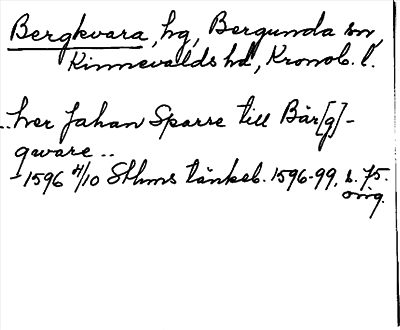 Bergkvara, hg, Bergunda sn,
Kinnevalds hd, Kronob. l.
..her Johan Sparre till Bär[g]-
qware..
1596 4/10 Sthms tänkeb. 1596-99, s. 75.
orig.